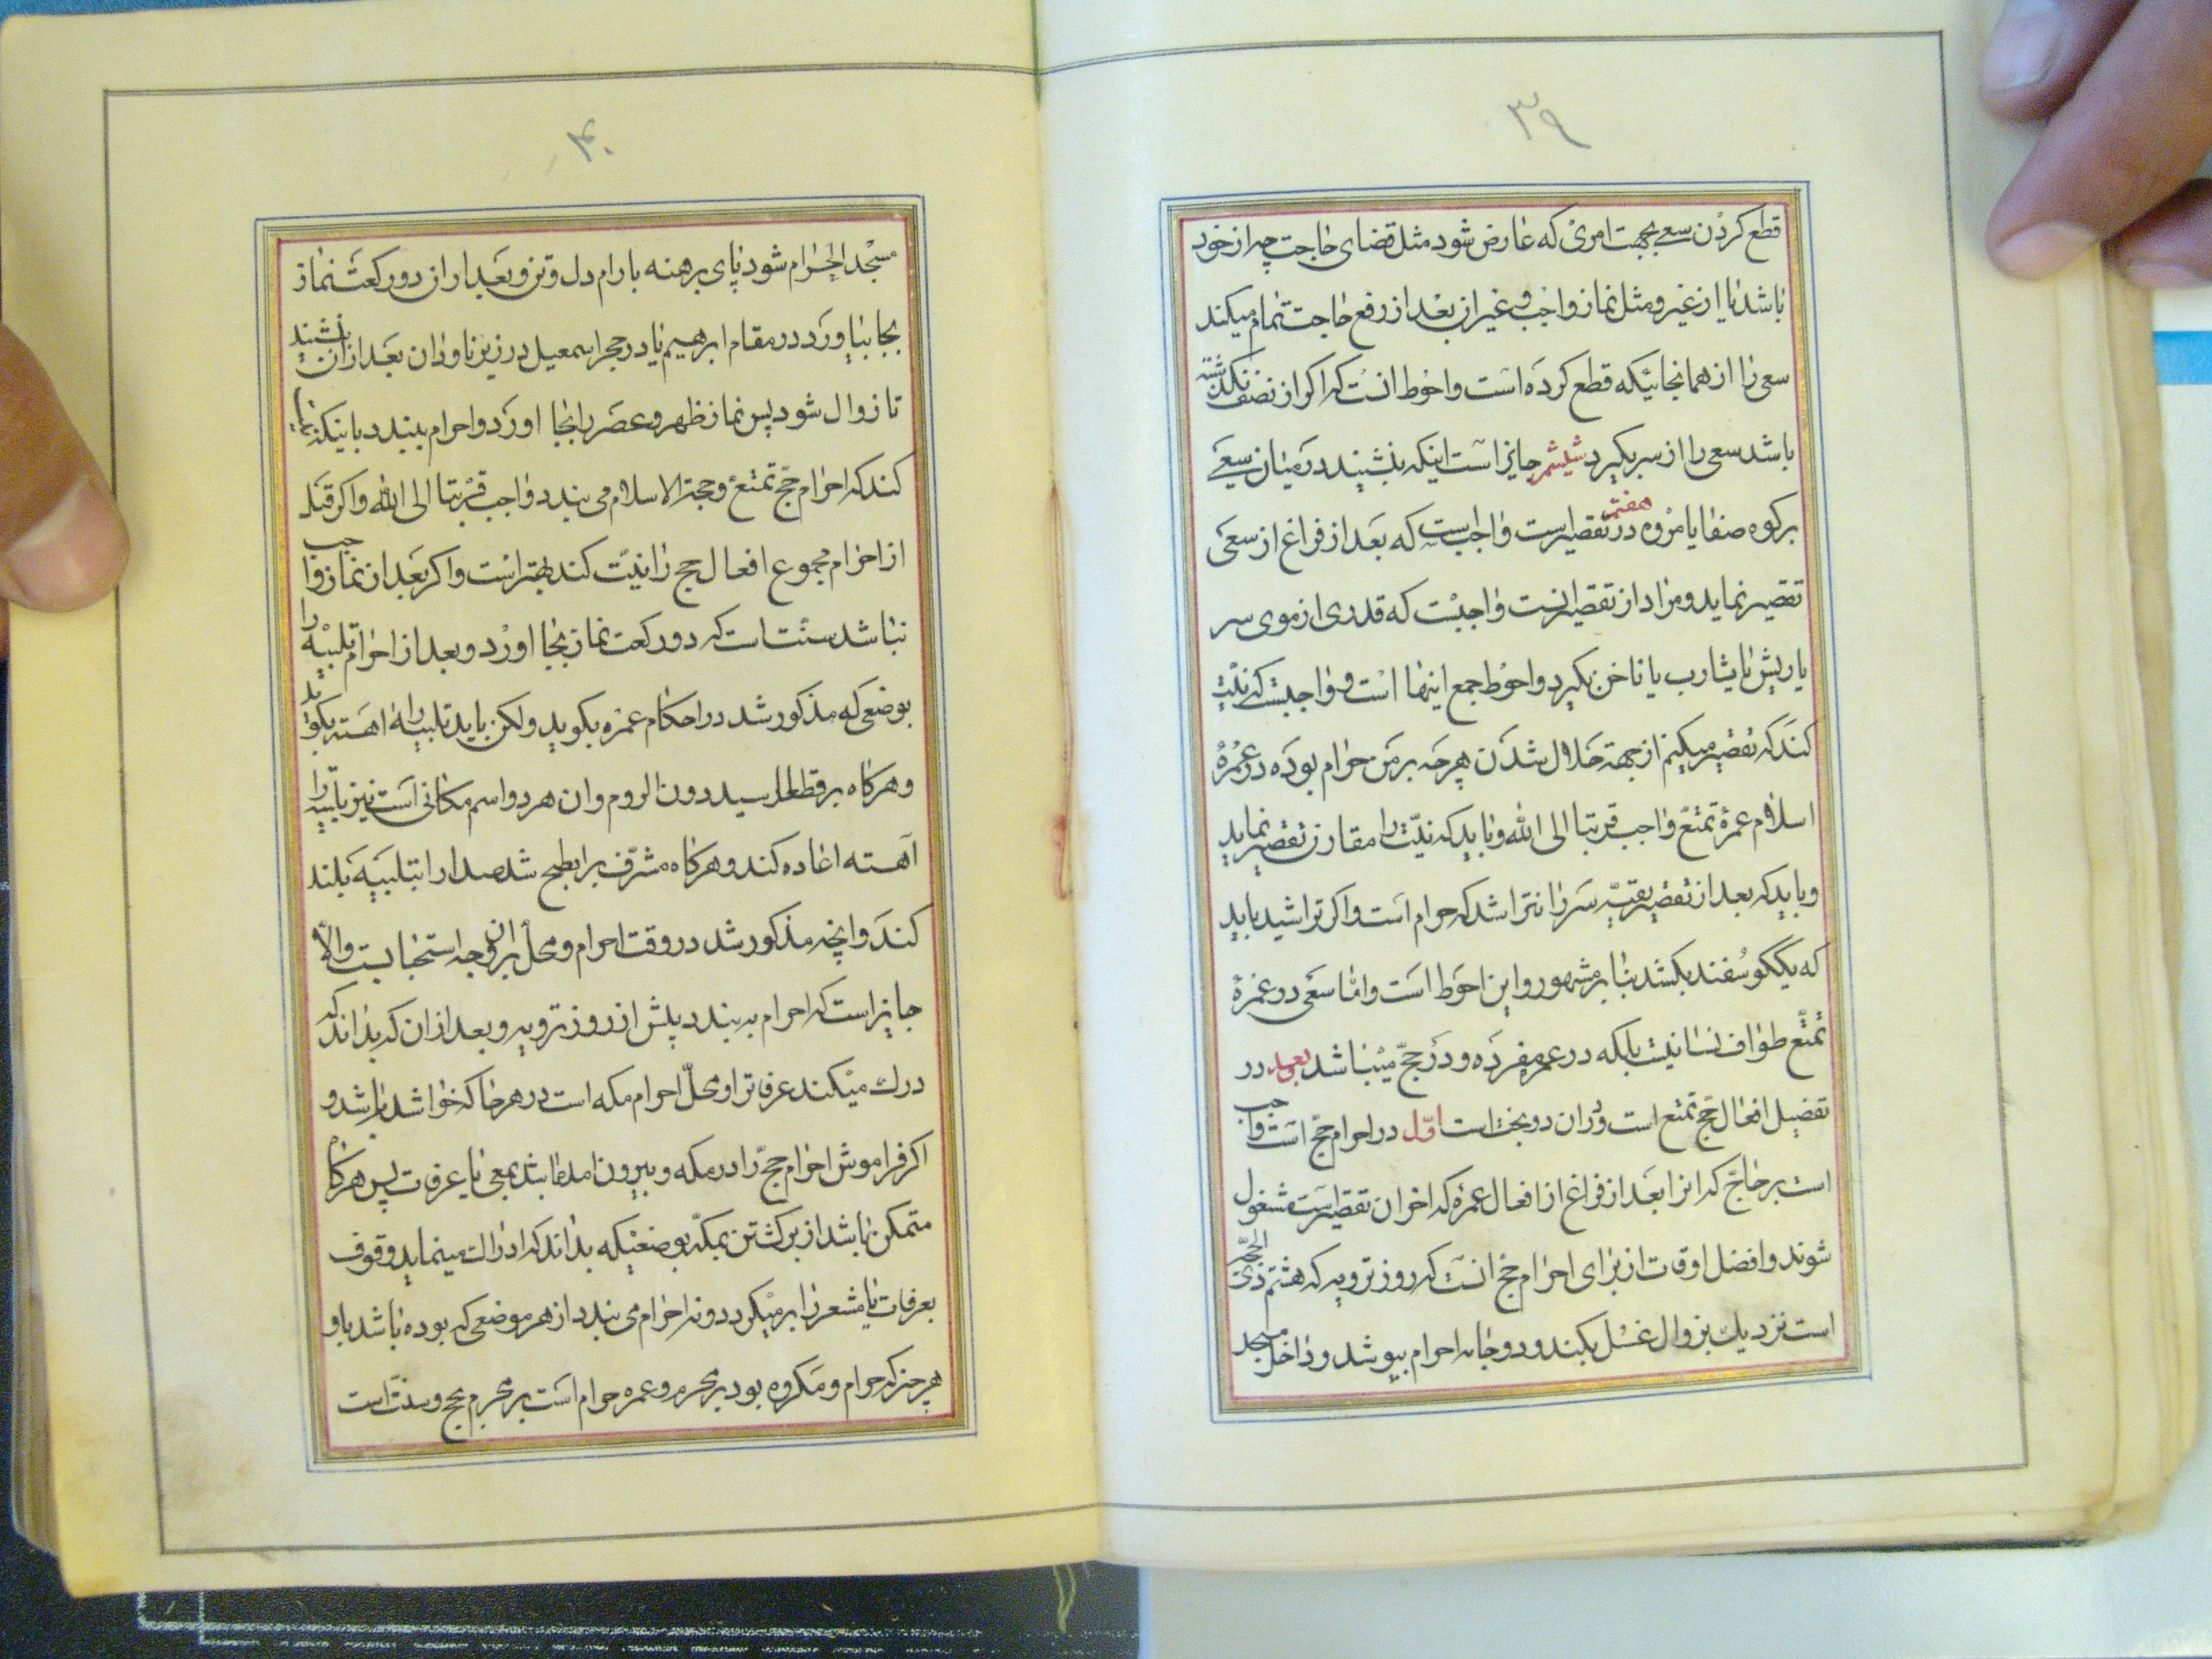 ۳۹
قطع کردن سعی بجهت امری که عارض شود مثل قضای حاجت چه از خود
باشد یا از غیر و مثل نماز واجب و غیر ان بعد از رفع حاجت تمام میکند
سعی را از همانجائیکه قطع کرده است و احوط انست که اکر از نصف نکذشته
باشد سعی را از سر بکیرد ششم جایز است اینکه بنشیند در میان سعی
بر کوه صفا یا مروه هفتم در تقصیر است واجبست که بعد از فراغ از سعی
تقصیر نماید و مراد از تقصیر انست واجبست که قدری از موی سر
یا ریش یا شارب یا ناخن بکیرد و احوط جمع اینها است و واجبست که نیت
کند که تقصیر میکنم از جهة حلال شدن هر چه بر من حرام بوده در عمرهٔ
اسلام عمرهٔ تمتع واجب قربتا الی الله و باید که نیت را مقارن تقصیر نماید
و باید که بعد از تقصیر بقیّه سر را نتراشد که حرام است و اکر تراشید باید
که یک کوسفند بکشد بنا بر مشهور و این احوط است و امّا سعی در عمرهٔ
تمتّع طواف نسا نیست بلکه در عمره مفرده و در حجّ میباشد در
تفصیل افعال حجّ تمتع است و در ان دو بحث است اوّل در احرام حجّ است واجب
است بر حاجّ که انرا بعد از فراغ از افعال عمره که اخر ان تقصیر است مشغول
شوند و افضل اوقات از برای احرام حج انست که روز ترویه که هشتم ذی الحجّه
است نزدیک بزوال غسل بکند و دو جامه احرام بپوشد و داخل مسجد
۴۰
مسجد الحرام شود پای برهنه بارام دل و تن و بعد از ان دو رکعت نماز
بجا بیاورد در مقام ابرهیم یا در حجر اسمعیل در زیر ناودان بعد از ان بنشیند
تا زوال شود پس نماز ظهر و عصر را بجا اورد و احرام ببندد باینکه
کند که احرام حجّ تمتع و حجة الاسلام می بندد واجب قربتا الی الله و اکر قبل
از احرام مجموع افعال حج را نیّت کند بهتر است و اکر بعد از نماز واجب
نباشد سنّت است که دو رکعت نماز بجا اورد و بعد از احرام تلبیه را
بوضعی که مذکور شد در احکام عمره بکوید ولکن باید تلبیه را اهسته بکوید
و هرکاه برقطا رسید دون الروم و ان هر دو اسم مکانی است نیز تلبیه را
آهسته اعاده کند و هرکاه مشرّف بر ابطح شد صدا را بتلبیه بلند
کند و انچه مذکور شد در وقت احرام و محل ان بر وجه استحبابست و الا
جایز است که احرام به بندد پیش از روز ترویه و بعد از ان که بداند که
درک میکند عرفاترا و محلّ احرام مکه است در هر جا که خواشد باشد و
اکر فراموش احرام حجّ را در مکه و بیرون امد باشد بمعی یا عرفات پس هرکاه
متمکن باشد از برکشتن بمکّه بوضعیکه بداند که ادراک مینماید وقوف
بعرفات یا مشعر را برمیکردد و نه احرام می بندد از هر موضعی که بوده باشد با و
هر چیز که حرام و مکروه بود بر محرم و عمره حرام است بر محرم بحج و سنّت است